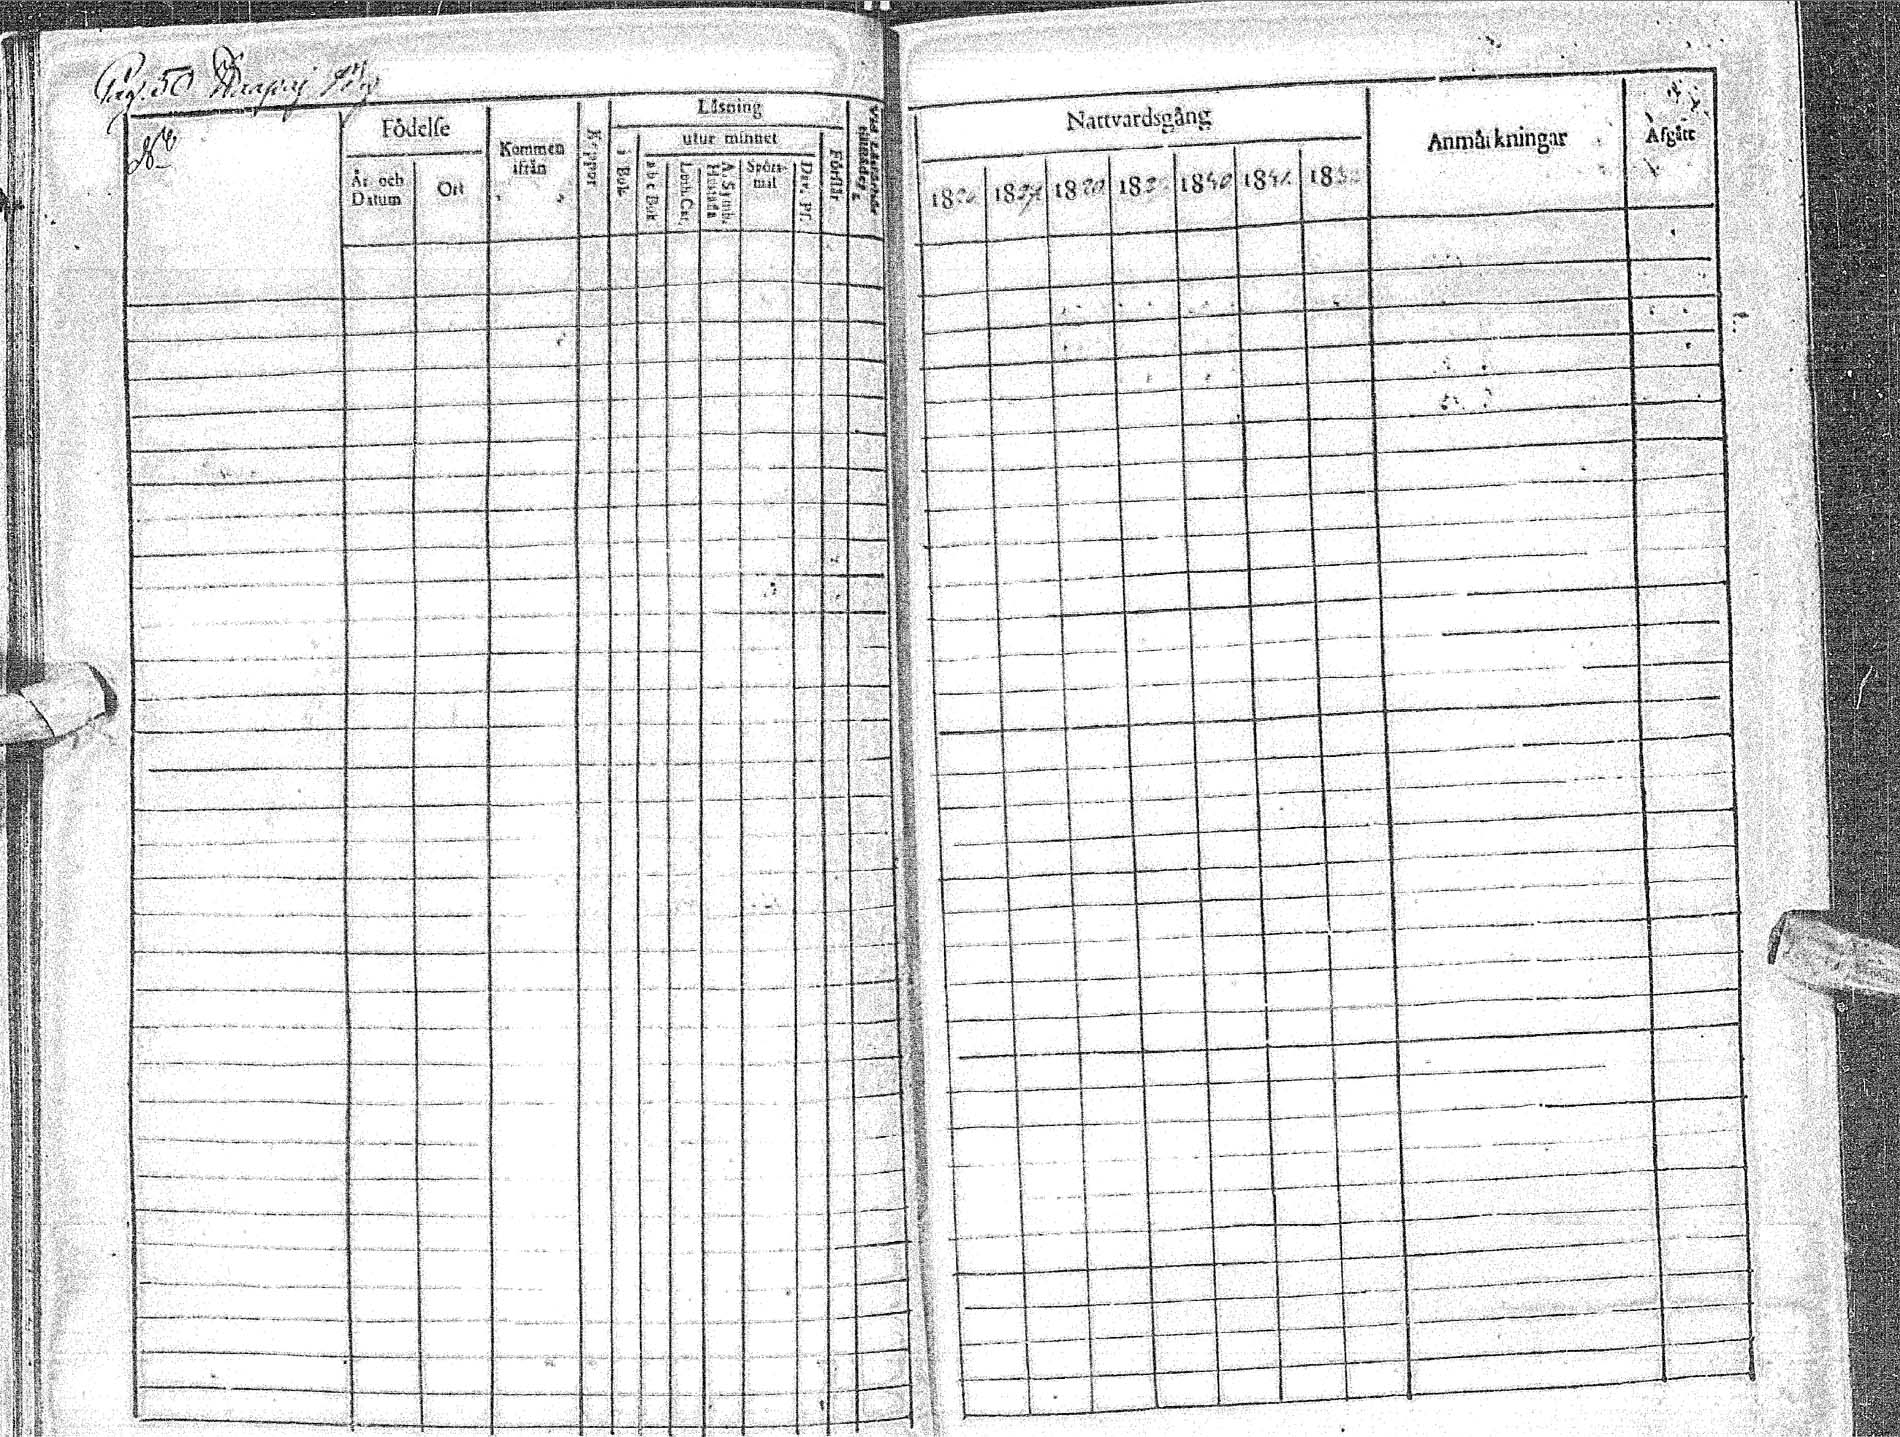 Pag. 50
No
Födelse
År och Datum
Ort
Kommen ifrån
Koppor
Läsning
i Bok
utur minnet
a b c Bok
Luth. Cat.
A. Symb. Hustafla
Spörsmål
Dav. Ps.
Förstår
Nattvardsgång
18
1837
18
18
1840
1841
18
Anmärkningar
Afgått